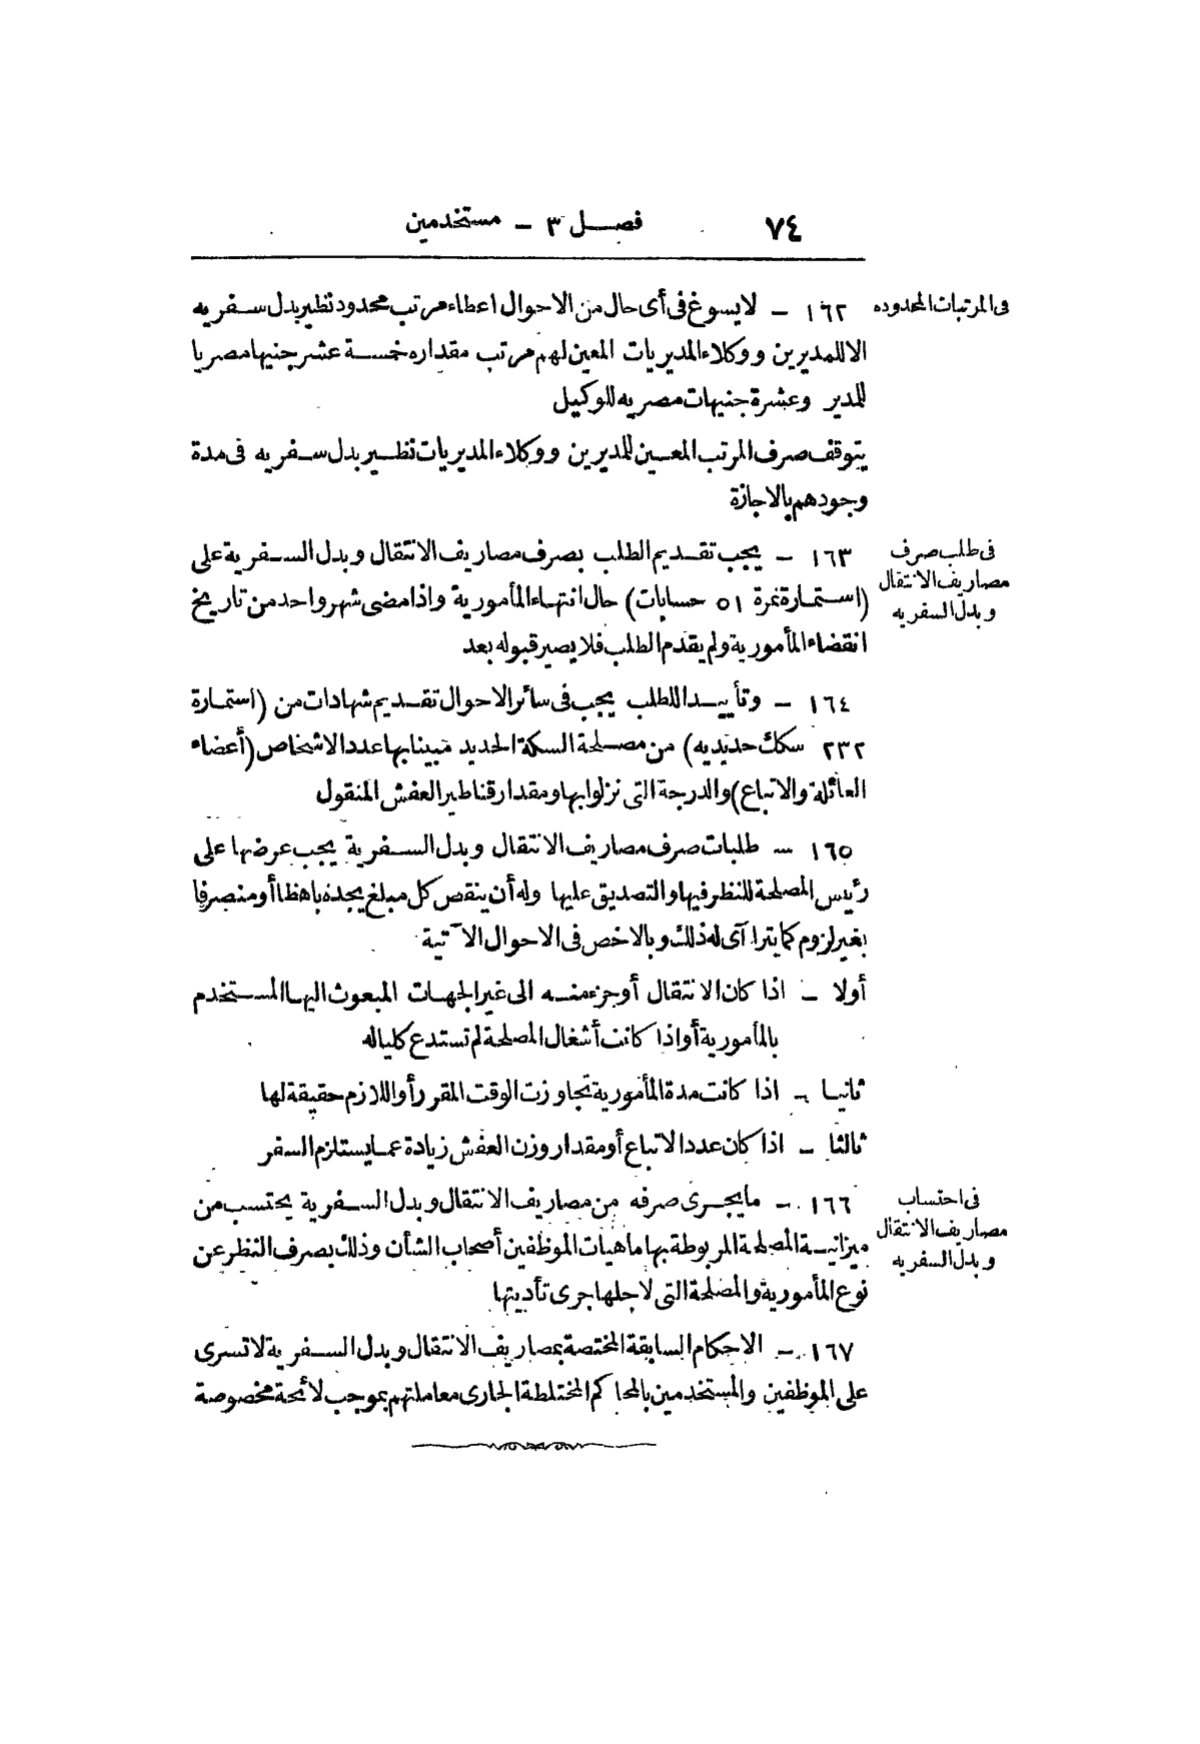 ٧٤ فصل ٣ – مستخدمين
فى المرتبات المحدوده
١٦٢ – لا يسوغ فى أى حال من الاحوال اعطاء مرتب محدود نظير بدل سفريه
الا للمديرين ووكلاء المديريات المعين لهم مرتب مقداره خمسة عشر جنيها مصريا
للمدير وعشرة جنيهات مصريه للوكيل
يتوقف صرف المرتب المعين للمديرين ووكلاء المديريات نظير بدل سفريه فى مدة
وجودهم بالاجازة
فى طلب صرف
مصاريف الانتقال
وبدل السفريه
١٦٣ – يجب تقديم الطلب بصرف مصاريف الانتقال وبدل السفرية على
(استمارة نمرة ٥١ حسابات) حال انتهاء المأمورية واذا مضى شهر واحد من تاريخ
انقضاء المأمورية ولم يقدم الطلب فلا يصير قبوله بعد
١٦٤ – وتأييدا للطلب يجب فى سائر الاحوال تقديم شهادات من (استمارة
٢٣٢ سكك حديديه) من مصلحة السكة الحديد مبينا بها عدد الاشخاص (أعضاء
العائلة والاتباع) والدرجة التى نزلوا بها ومقدار قناطير العفش المنقول
١٦٥ – طلبات صرف مصاريف الانتقال وبدل السفرية يجب عرضها على
رئيس المصلحة للنظر فيها والتصديق عليها وله أن ينقص كل مبلغ يجده باهظا أو منصرفا
بغير لزوم كما يتراآى له ذلك وبالاخص فى الاحوال الآتية
أولا – اذا كان الانتقال أو جزء منه الى غير الجهات المبعوث اليها المستخدم
بالمأمورية أو اذا كانت أشغال المصلحة لم تستدع كلياله
ثانيا – اذا كانت مدة المأمورية تجاوزت الوقت المقرر أو اللازم حقيقة لها
ثالثا – اذا كان عدد الاتباع أو مقدار وزن العفش زيادة عما يستلزم السفر
فى احتساب
مصاريف الانتقال
وبدل السفريه
١٦٦ – ما يجرى صرفه من مصاريف الانتقال وبدل السفرية يحتسب من
ميزانية المصلحة المربوطة بها ماهيات الموظفين أصحاب الشأن وذلك بصرف النظر عن
نوع المأمورية والمصلحة التى لاجلها جرى تأديتها
١٦٧ – الاحكام السابقة المختصة بمصاريف الانتقال وبدل السفرية لا تسرى
على الموظفين والمستخدمين بالمحاكم المختلطة الجارى معاملتهم بموجب لائحة مخصوصة